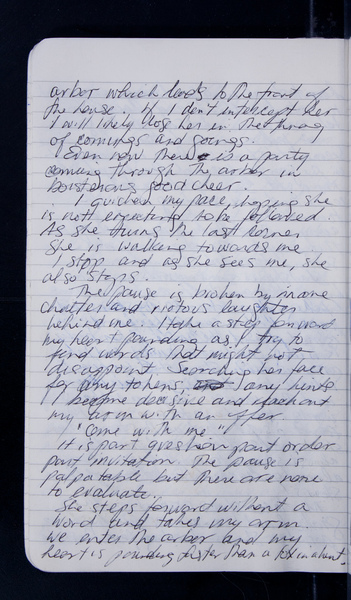 arbor which leads to the front of
the house. If I don't intercept her
I will likely lose her in the throng
of comings and goings.
Even now there is a party
coming through the arbor in
boisterous good cheer.
I quicken my pace, hoping she
is not expecting to be followed.
As she turns the last corner
she is walking towards me
I stop and as she sees me, she
also stops.
The pause is broken by inane
chatter and riotous laughter
behind me. I take a step forward
my heart pounding as I try to
find words that might not
disappoint. Searching her face
for any tokens, any hints
I become decisive and reach out
my arm with an offer
"Come with me"
it is part question part order
part invitation. The pause is
palpatable but there are none
to evaluate.
She steps forward without a
word and takes my arm.
We enter the arbor and my
heart is pounding faster than a fox in a hunt.